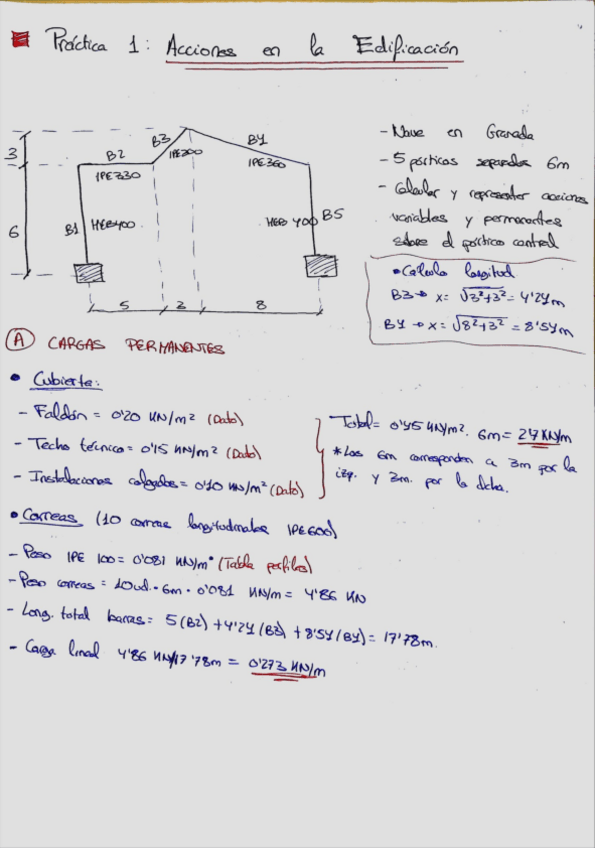 Práctica 1: Acciones en la Edificación
3
6
B1
HEB400
B2
IPE330
B3
IPE300
B4
IPE360
HEB 400 B5
5
3
8
- Nave en Granada
- 5 pórticos separados 6m
- Calcular y representar acciones
variables y permanentes
sobre el pórtico central
• Cálculo longitud
B3 → x = √3²+3² = 4'24m
B4 → x = √8²+3² = 8'54m
A CARGAS PERMANENTES
• Cubierta:
- Faldón = 0'20 KN/m² (Dato)
- Techo técnico = 0'15 KN/m² (Dato)
- Instalaciones colgadas = 0'10 KN/m² (Dato)
Total = 0'45 KN/m². 6m = 2'7 KN/m
* Los 6m corresponden a 3m por la
izq. y 3m. por la dcha.
• Correas (10 correas longitudinales IPE600)
- Peso IPE 100 = 0'081 KN/m* (Tabla perfiles)
- Peso correas = 10ud. · 6m · 0'081 KN/m = 4'86 KN
- Long. total barras = 5 (B2) + 4'24 (B3) + 8'54 (B4) = 17'78m.
- Carga lineal 4'86 KN/17'78m = 0'273 KN/m